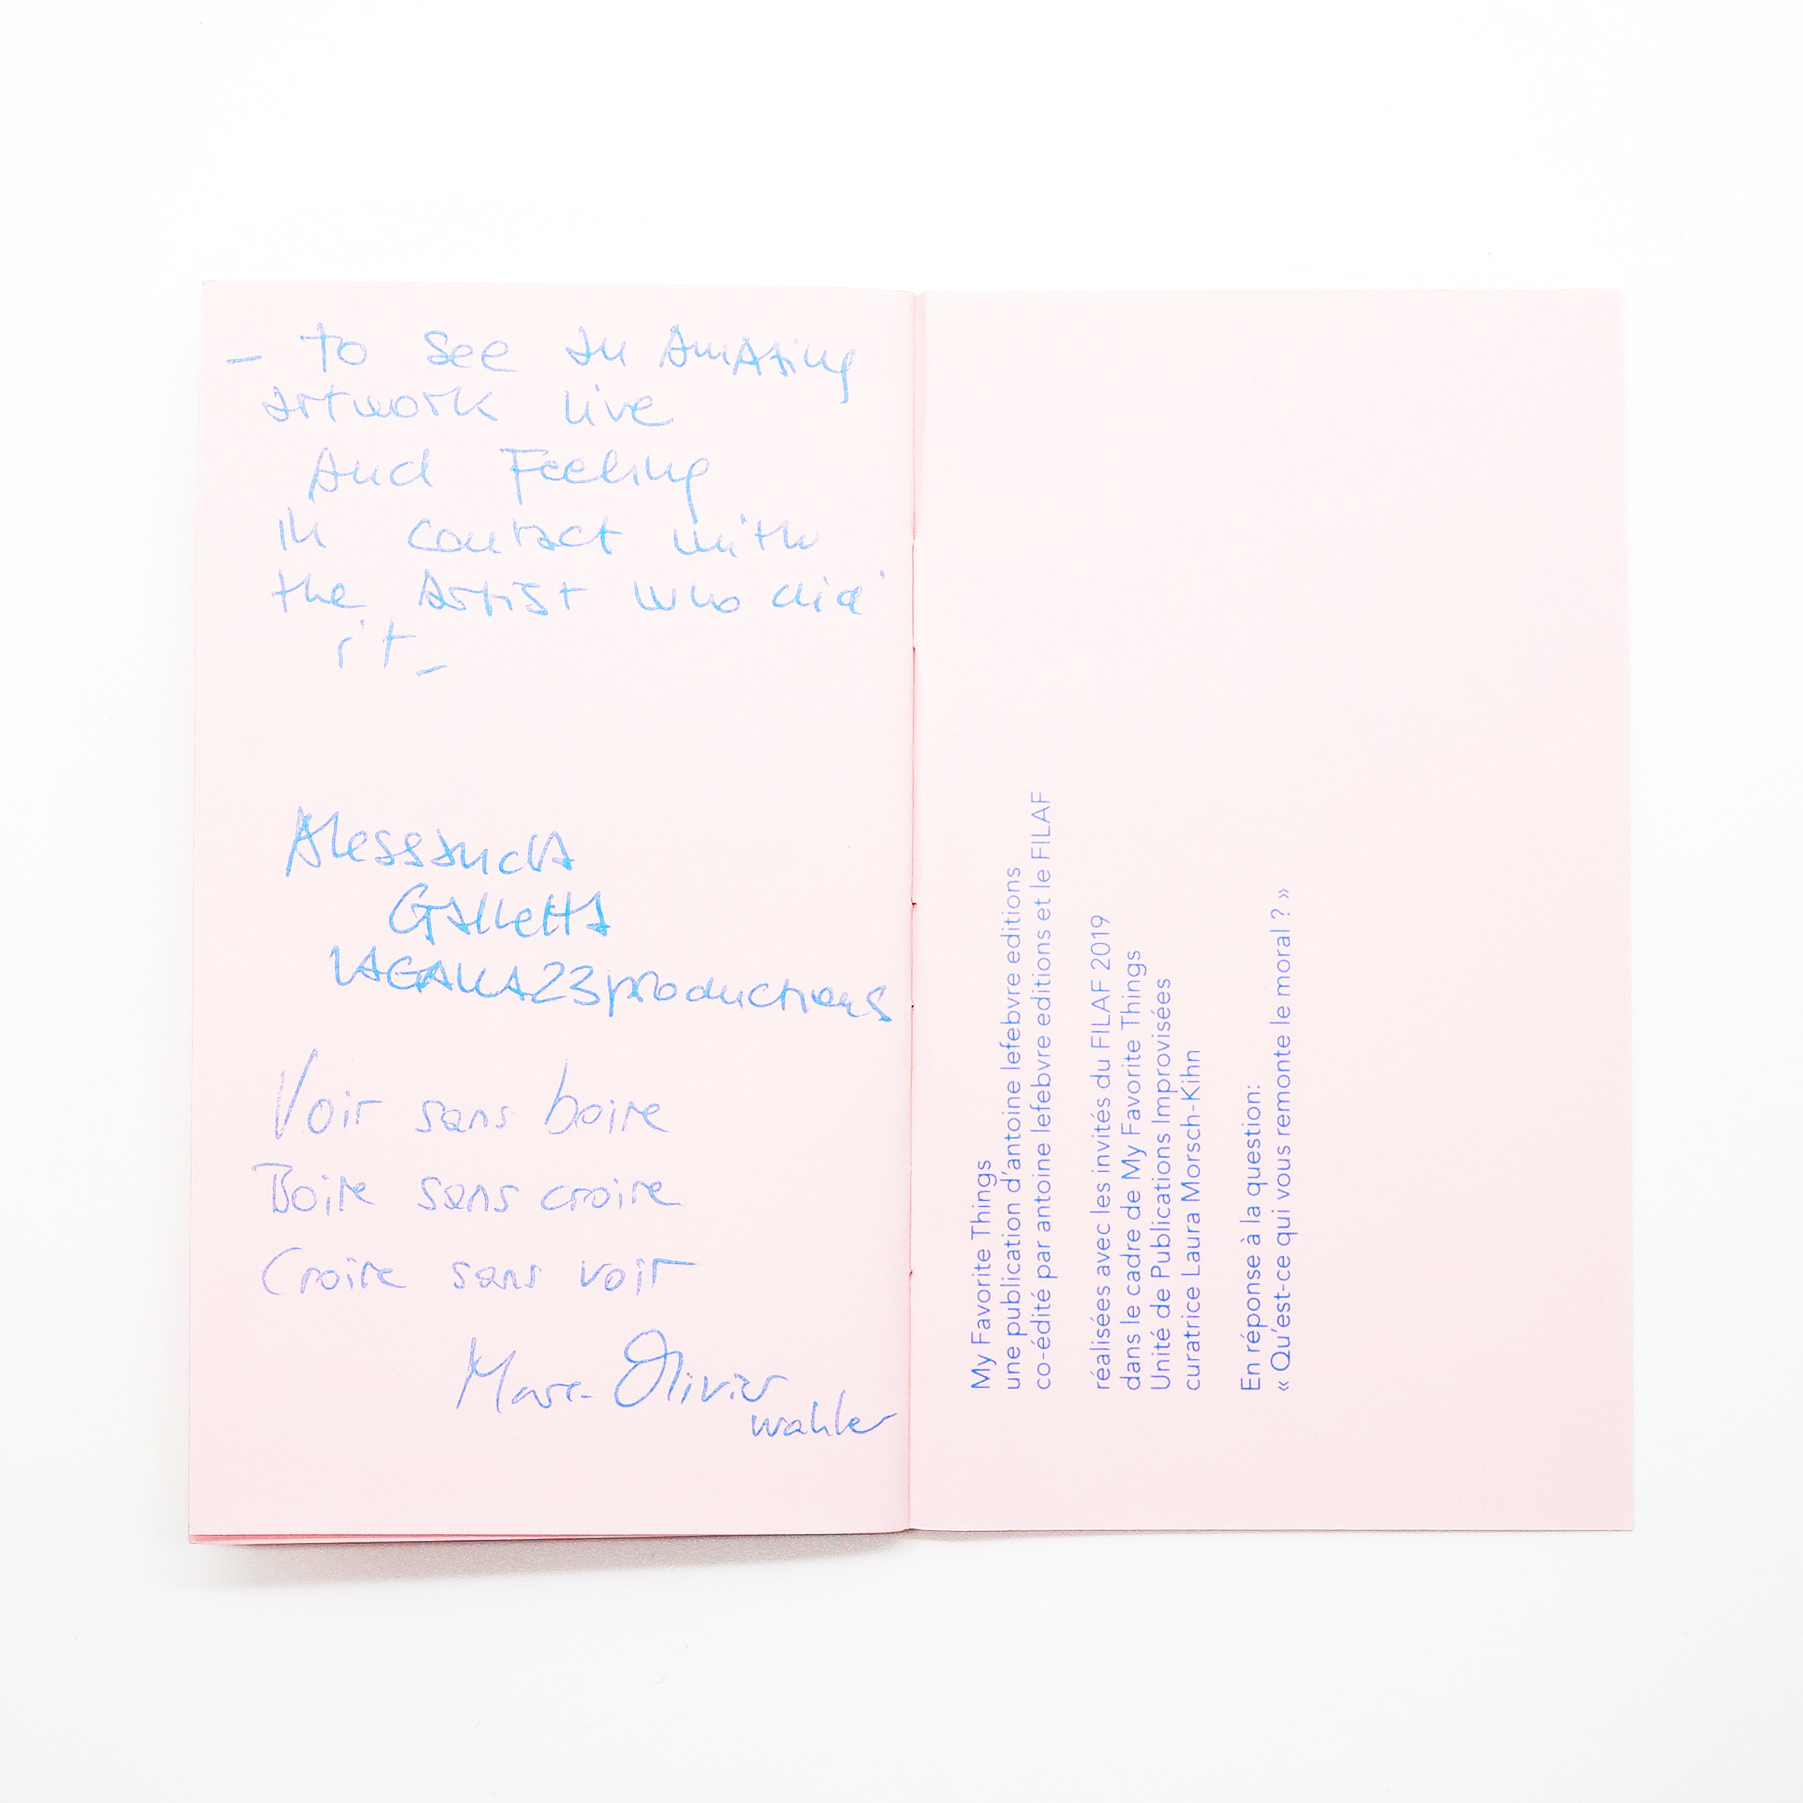 – to see an amazing
artwork live
And Feeling
in contact with
the Artist who did
it –
Alessandra
Galletta
LAGALLA23productions
Voir sans boire
Boire sans croire
Croire sans voir
Marc-Olivier
wahler
My Favorite Things
une publication d'antoine lefebvre editions
co-édité par antoine lefebvre editions et le FILAF
réalisées avec les invités du FILAF 2019
dans le cadre de My Favorite Things
Unité de Publications Improvisées
curatrice Laura Morsch-Kihn
En réponse à la question:
« Qu'est-ce qui vous remonte le moral ? »